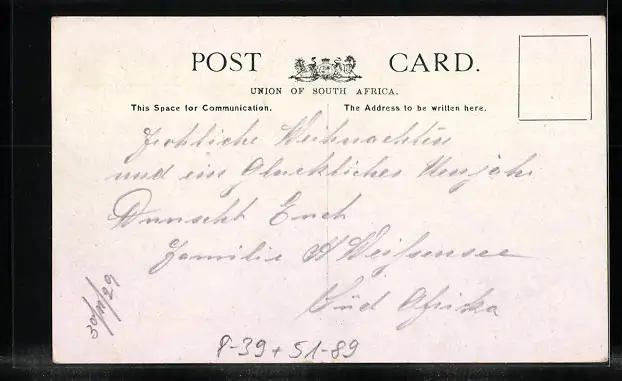 POST CARD.
UNION OF SOUTH AFRICA.
This Space for Communication. The Address to be written here.
Frohliche Weihnachten
und ein Gluckliches Neujahr
Wunscht Euch
Familie A Weissensee
Süd Afrika
P-39 + 51-89